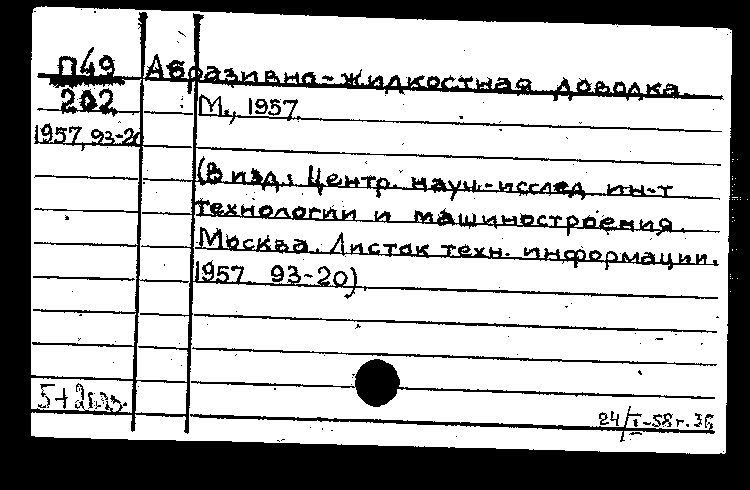 П49 Абразивно-жидкостная доводка.
202 М., 1957.
1957, 93-20
(В изд.: Центр. науч.-исслед ин-т
технологии и машиностроения.
Москва. Листок техн. информации.
1957 93-20).
24/I-58г.